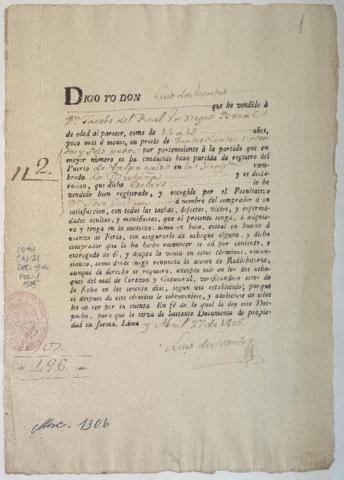 1
DIGO YO DON Luis dos Santos
que he vendido á
Dn. Jacobo del Real Un Negro Bozal
de edad al parecer, como de años,
poco mas ó menos, en precio de
y seis pesos por perteneciente á la partida que en
mayor número se ha conducido baxo partida de registro del
Puerto de Valparaiso en la nom-
brada la y es decla-
racion, que dicho Esclavo lo he
vendido bien registrado, y escogido por el Facultativo
Dn. José á nombre del comprador á su
satisfaccion, con todas las tachas, defectos, vicios, y enferme-
dades ocultas, y manifiestas, que al presente tenga, ó adquie-
ra y tenga en lo sucesivo: alma en boca, costal en huesos á
usanza de Feria, sin asegurarlo de achaque alguno, y dicho
comprador que lo ha hecho reconocer se dá por contento, y
entregado de él, y acepta la venta en estos términos, renun-
ciando, como desde luego renuncia la accion de Redhibitoria,
aunque de derecho se requiera, excepto solo en los dos acha-
ques del mal de Corazon y Gotacoral, verificándose estos de
la fecha en los sesenta dias, segun uso establecido, porque
si despues de este término le sobrevinieren, y adoleciese de ellos
ha de ser por su cuenta. En fé de lo qual le doy este Des-
pacho, para que le sirva de bastante Documento de propie-
dad en forma. Lima y Abril 27 de 1806
Luis dos Santos
n 2.
196.
Msc. 1306